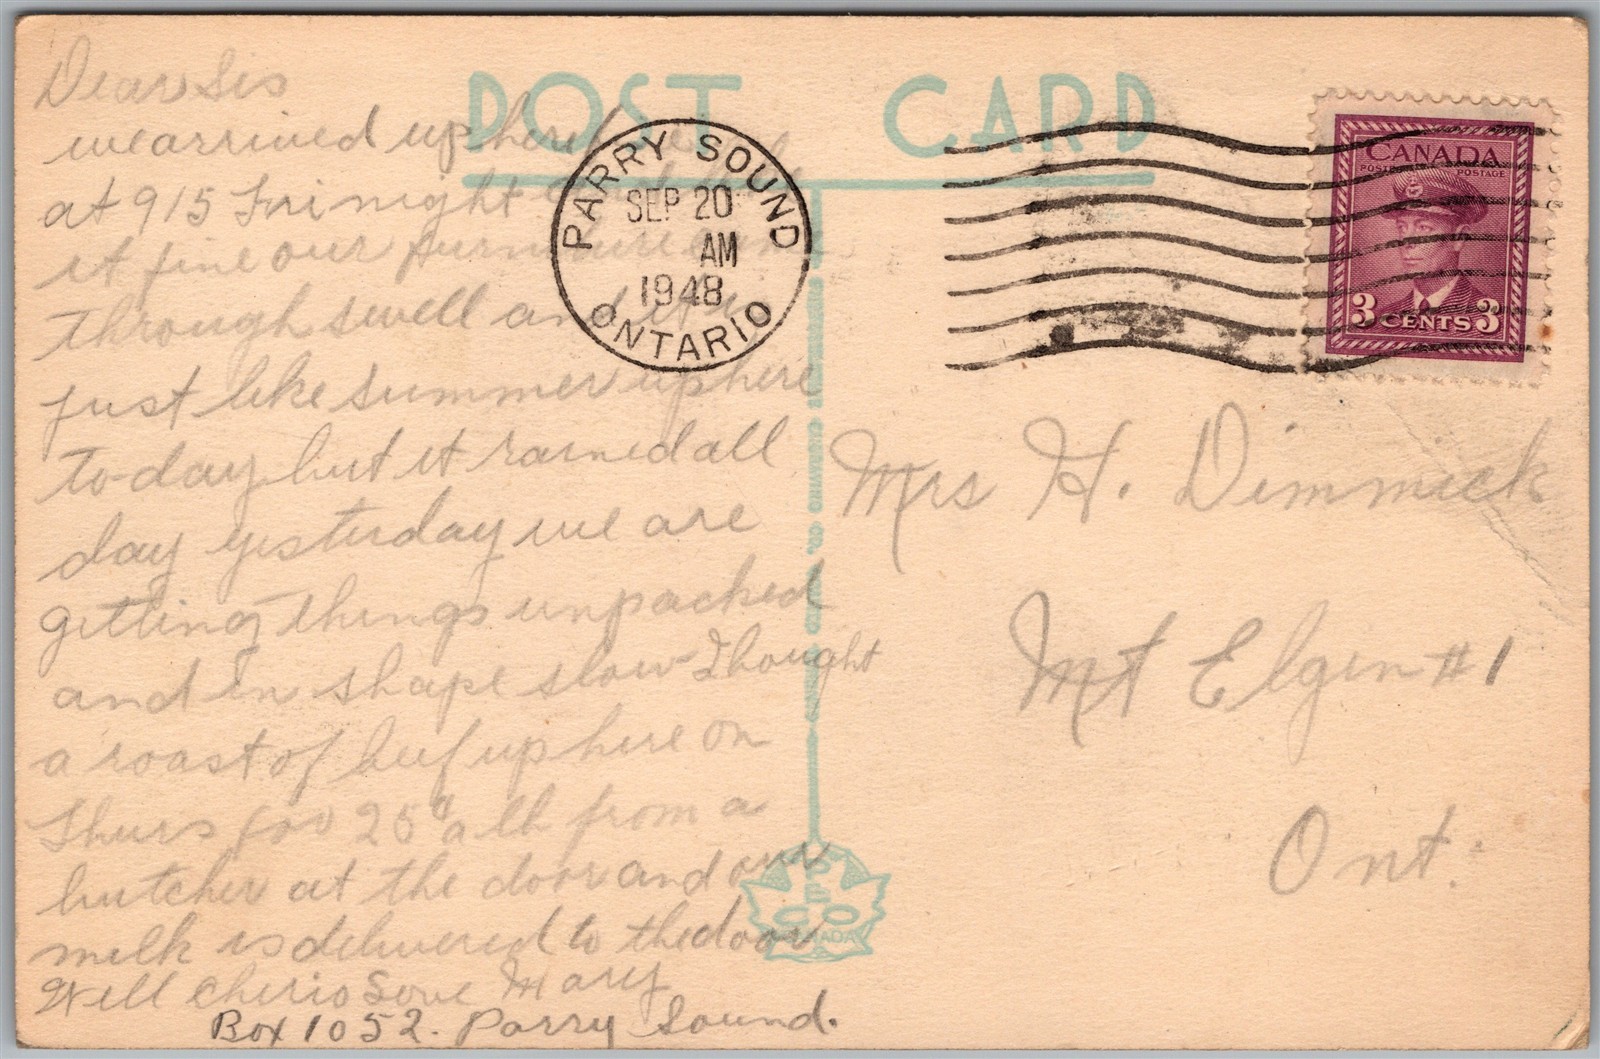 POST CARD
Dear Sis
we arrived up here
at 915 Fri night
it fine our furniture came
through swell and it is
just like summer up here
to-day but it rained all
day yesterday we are
getting things unpacked
and in shape slow - Thought
a roast of beef up here on
Thurs for 25¢ a lb from a
butcher at the door and our
milk is delivered to the door
Well cherio Love Mary
Box 1052. Parry Sound.
PARRY SOUND
SEP 20
AM
1948
ONTARIO
CANADA
POSTES POSTAGE
3 CENTS 3
Mrs H. Dimmick
Mt Elgin #1
Ont.
PECO
CANADA